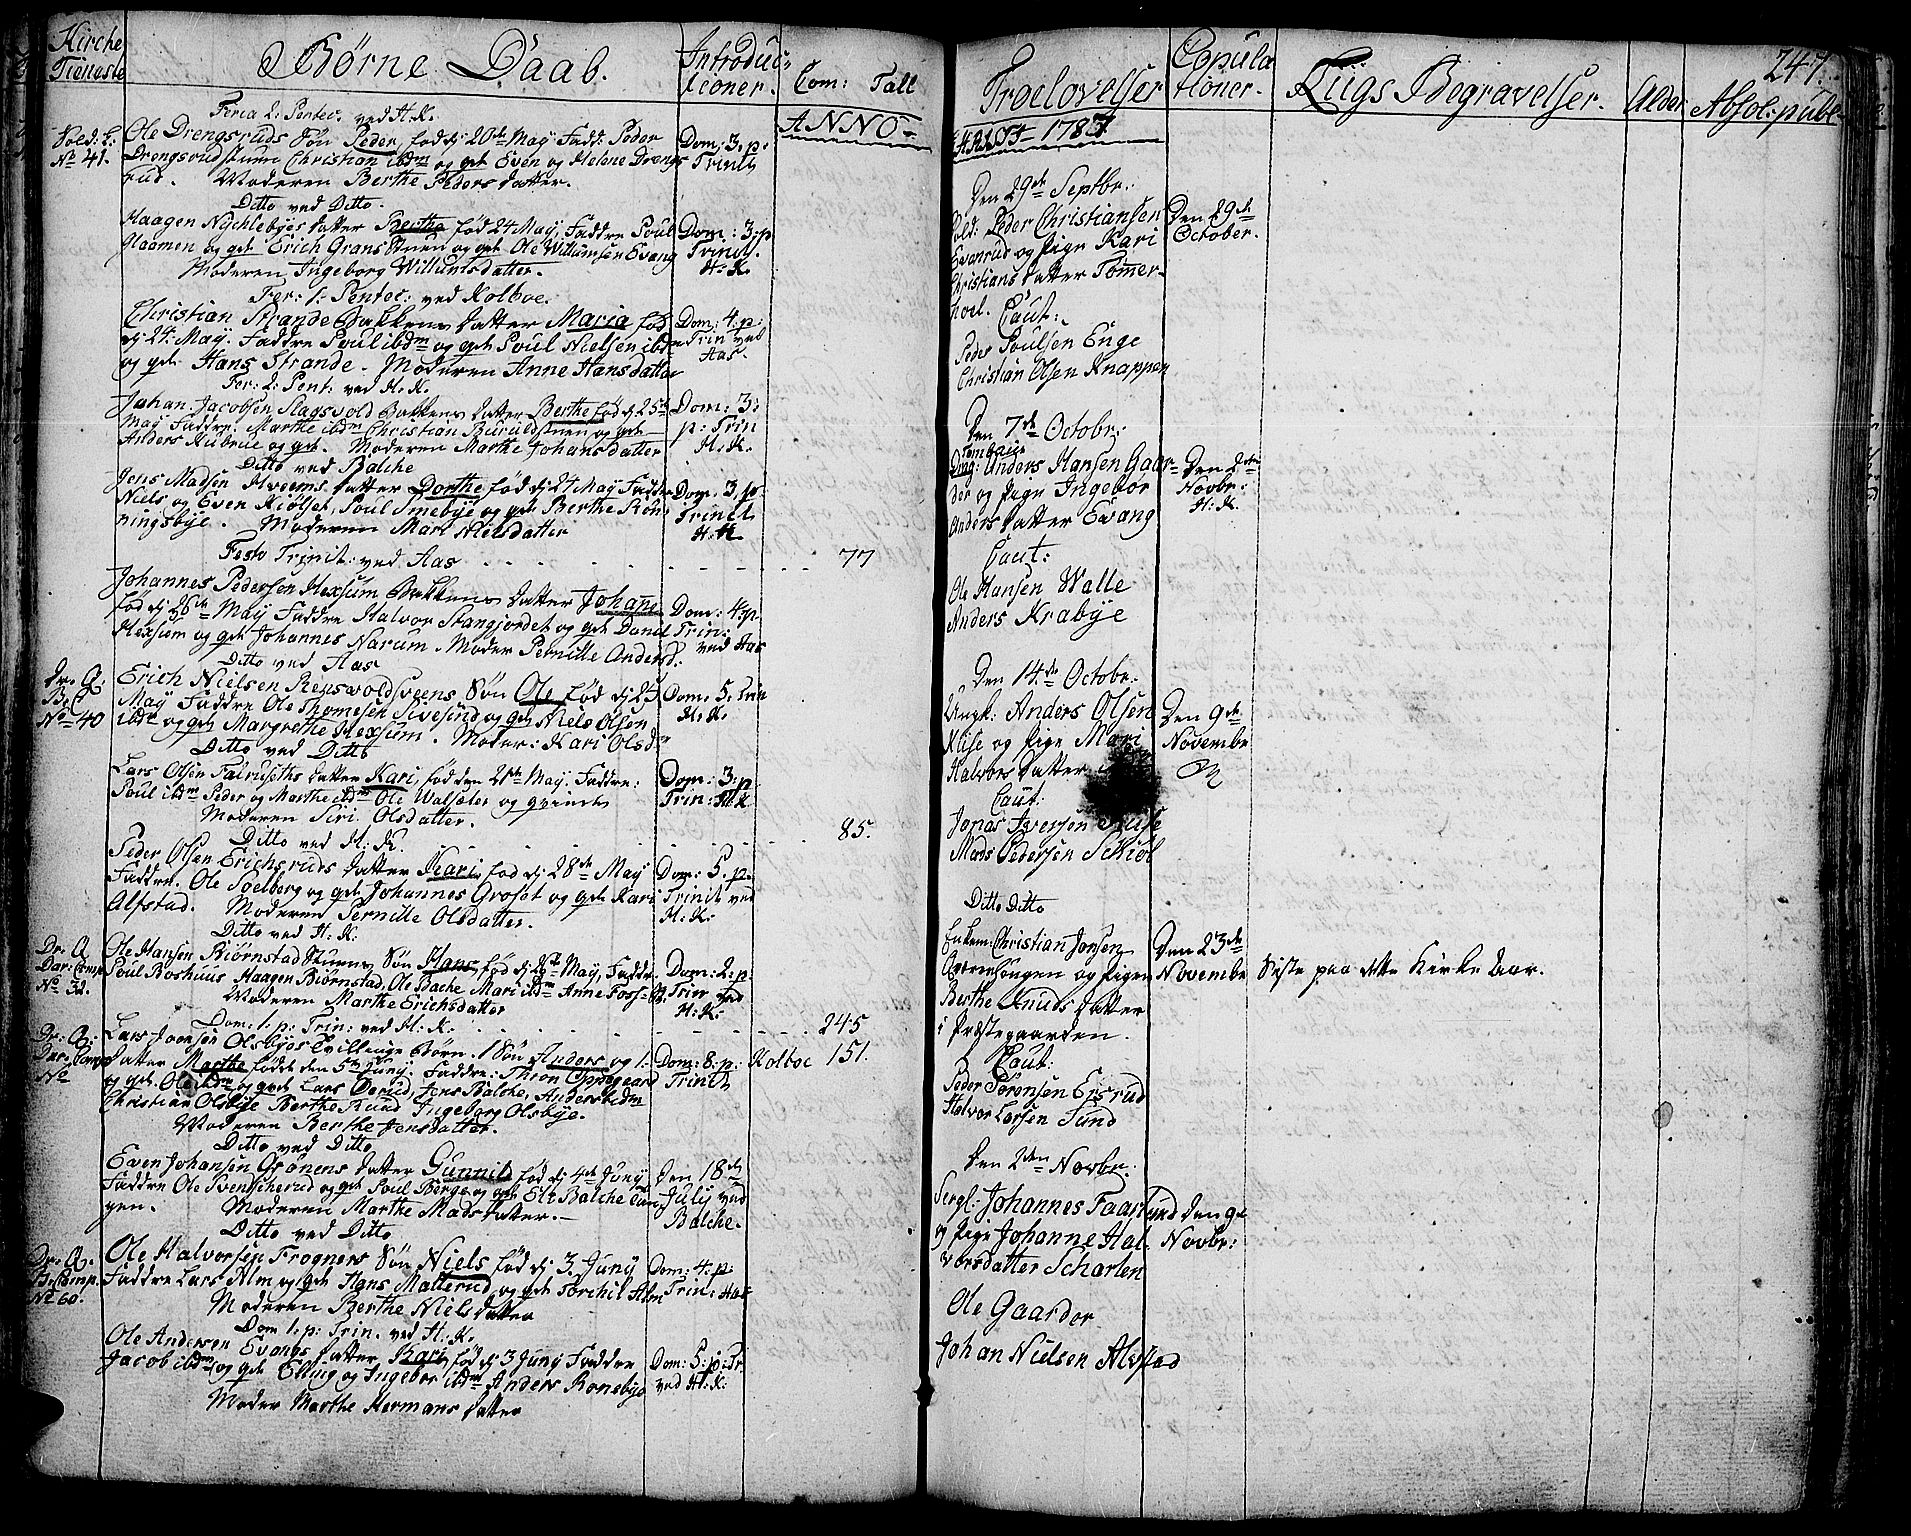 Kirche Tieneste
Børne Daab.
Introductioner.
Com: Tall
ANNO
Feria 2. Pentec: ved H.K.
Vold: L: No 41.
Ole Drengsruds Søn Peder, fød dj 20de May Fadd: Peder
Drengsrudstuen Christian ibdm og gvt Even og Helene Drengs
rud. Moderen Berthe Peders datter.
Dom: 3. p. Trinit
Ditto ved Ditto.
Haagen Nychlebyes datter Berthe fød 24 May, Faddre Poul
Haamen og gvt Erich Grans Stuen og gvt Ole Willumsen Evang
Moderen Ingeborg Willumsdatter.
Dom: 3: p Trinit. H: K.
Fer: 1: Pentec: ved Kolboe.
Christian Strande Bakkens datter Maria fød
dj 24: May. Faddre Poul ibdm og gvt Poul Nielsen ibdm
og gvt Hans Strande. Moderen Anne Hansdatter
Dom: 4: p: Trin ved Aas.
Fer: 2: Pent: ved H. K.
Johan Jacobsen Slagsvold Bakkens datter Berthe fød dj 25de
May Faddre. Marthe ibdm Christian Buruldstuen og gvt
Anders Hubrue og gvt. Moderen Marthe Johansdatter
Dom: 3: p: Trin H. K.
Ditto ved Balche
Jens Madsen Hveems datter Dorthe fød dj 27 May Faddre
Niels og Even Kiølset, Poul Smebye og gvt Berthe Røn
ningsbye. Moderen Mari Nielsdatter
Dom: 3. p. Trinit H. K
Festo Trinit: ved Aas 77
Johannes Pedersen Hexsum Bakkens datter Johane
fød dj 26de May Faddre Halvor Stangjordet og gvt Daniel
Hexsum og gvt Johannes Narum. Moder Pernille Andersd:
Dom: 4: p Trin: ved Aas
Ditto ved Aas
Dr: Q: B: C No 40
Erich Nielsen Rensvoldsveens Søn Ole fød dj 25
May Faddre Ole Thomesen Sivesind og gvt Niels Olsen
ibdm og gvt Margrethe Hexsum. Moder: Kari Olsdr
Dom: 5. Trin H. K.
Ditto ved Ditto
Lars Olsen Falruseths datter Kari, fød den 21de May. Faddre:
Poul ibdm Peder og Marthe ibdm Ole Walsæter og qvinde
Moderen Siri Olsdatter.
Dom: 3: p. Trin: H. K
Ditto ved H: K. 85.
Peder Olsen Erichsruds datter Kari fød dj 28de May
Faddre. Ole Soelberg og gvt Johannes Groset og gvt Kari
Alfstad. Moderen Pernille Olsdatter.
Dom: 5. p. Trinit ved H: K:
Ditto ved H. K.
Dr: Q Dar: Comp No 32.
Ole Hansen Biørnstad Stuens Søn Hans fød dj 28de May, Faddre
Poul Roshuus Haagen Biørnstad, Ole Bache Mari ibdm Anne Foss
Moderen Marthe Erichsdatter
Dom: 2: p Trin ved H: K:
Dom: 1: p: Trin: ved H. K: 245
Dr: Q: Dar: Comp No
Lars Joensen Olsbyes Tvillinge Børn. 1 Søn Anders og 1
datter Marthe fødde den 5te Juny. Faddre: Thron Oppegaard
og gvt Ole ibdm og gvt Lars Derud, Jens Balche, Anders ibdm
Christian Olsbye Berthe Rund Ingeborg Olsbye.
Moderen Berthe Jensdatter.
Dom: 8: p: Trinit
Kolboe 151.
Ditto ved Ditto
Even Johansen Grønens datter Gunnild fød dj 4de Juny
Faddre Ole Svenscherud og gvt Poul Berge og gvt Eli Balche
gen. Moderen Marthe Madsdatter.
Den 18de July ved Balche.
Ditto ved Ditto
Dr: Q. B: Comp. No 60.
Ole Halvorsen Frogners Søn Niels fød dj 3. Juny
Faddre Lars Alm og gvt Hans Matterud, og gvt Torchil Alm
Moderen Berthe Nielsdatter
Dom: 4: p. Trin: Aas
Dom 1: p: Trin. ved H. K.
Ole Andersen Evangs datter Kari, fød dj 3 Juny Faddre
Jacob ibdm og gvt Elling og Ingebor ibdm Anders Ronebye
Moder Marthe Hermans datter
Dom: 5: p: Tr. ved H: K:
Troelovelser
Copulationer.
Liigs Begravelser.
Alder
Absol: publ
247.
1783
Den 29de Septbr:
Sold: Peder Christiansen
Evenrud og Pige Kari
Christians datter Tomer-
hoel. Caut:
Peder Poulsen Enge
Christian Olsen Knappen
Den 29de October.
Den 7de Octobr:
Ung: Anders Hansen Gaar-
der og Pige Ingebor
Anders datter Evang
Caut:
Ole Hansen Walle
Anders Krabye
Den 2den Novbr: H: K.
Den 14de Octobr:
Ungk: Anders Olsen
Kiise og Pige Mari
Halvors datter
Caut:
Jonas Iversen Kiise
Mads Pedersen Schiøl
Den 9de Novembr
Ditto Ditto
Enkem: Christian Jonsen
og Pigen
Berthe Knuds datter
i Præstegaarden.
Caut:
Peder Sørensen Eisrud
Halvor Larsen Sund
Den 23de Novembr
Siste paa dette Kirke Aar.
Den 2den Novbr.
Sergt: Johannes Faarlund
og Pige Johanne Hal-
vorsdatter Scharlen
Ole Gaarder
Johan Nielsen Alvstad
Den 9de Novbr: